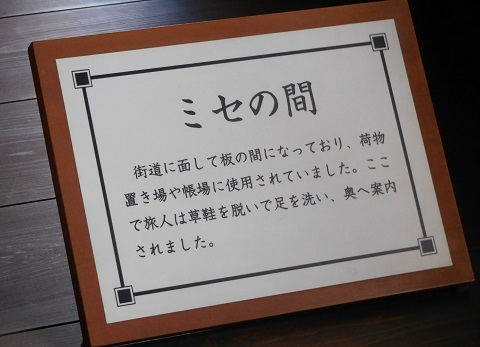 ミセの間
街道に面して板の間になっており、荷物
置き場や帳場に使用されていました。ここ
で旅人は草鞋を脱いで足を洗い、奥へ案内
されました。